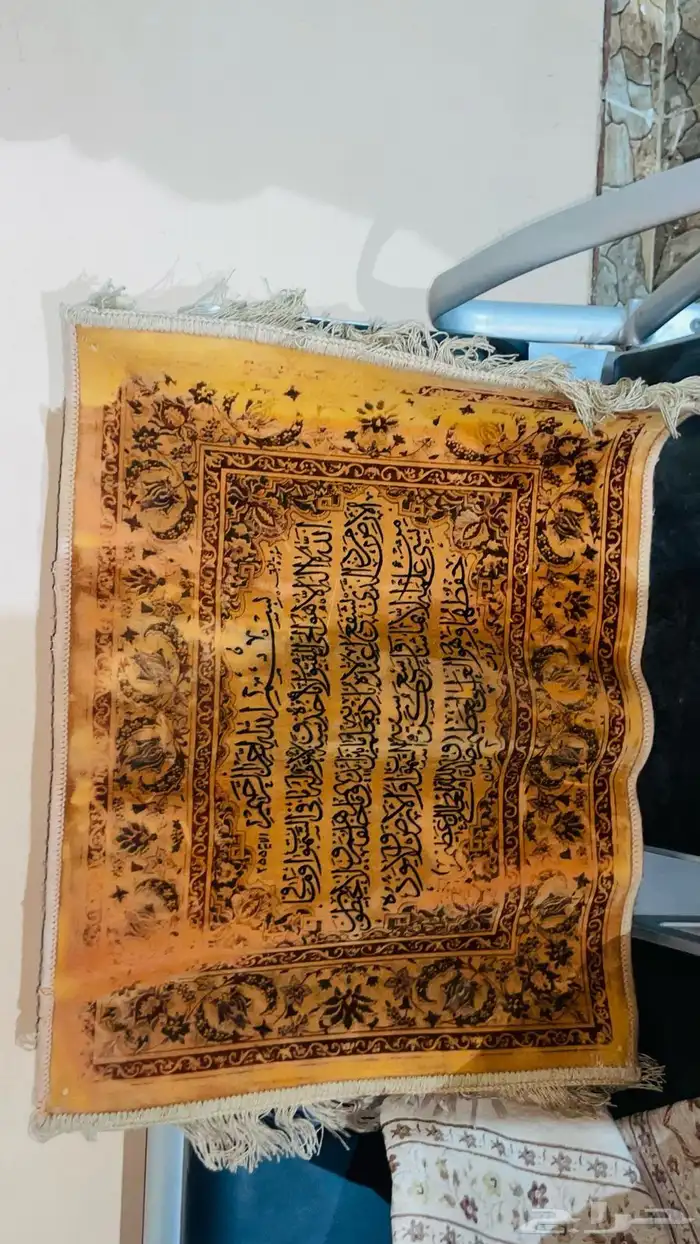 بسم الله الرحمن الرحيم
الله لا اله الا هو الحي القيوم لا تأخذه سنة ولا نوم له ما في السموات وما في
الارض من ذا الذي يشفع عنده الا باذنه يعلم ما بين ايديهم وما خلفهم ولا يحيطون
بشيء من علمه الا بما شاء وسع كرسيه السموات والارض ولا يؤده
حفظهما وهو العلي العظيم صدق الله العلي العظيم
حراج